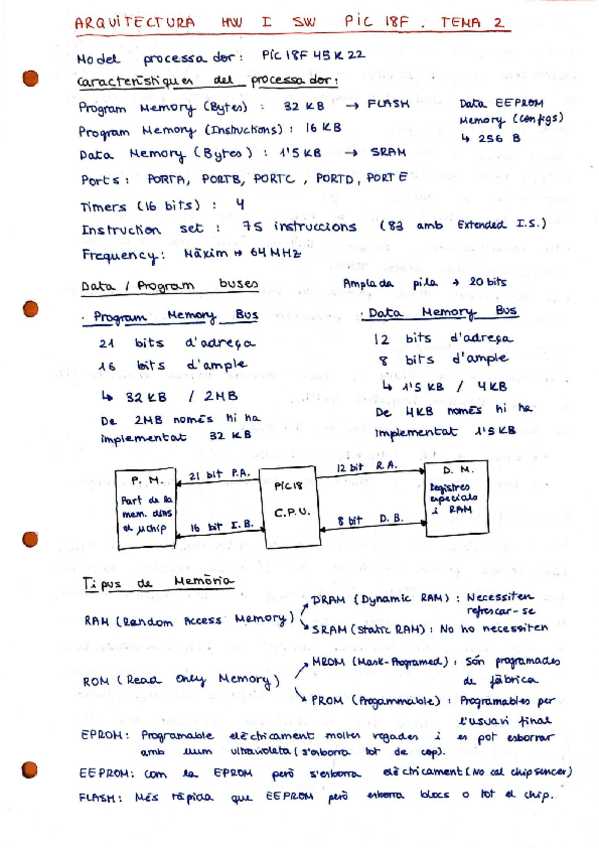 ARQUITECTURA HW I SW PIC 18F. TEMA 2
Model processador: PIC 18F 45K22
Característiques del processador:
Program Memory (Bytes) : 32 KB → FLASH
Data EEPROM
Memory (configs)
↳ 256 B
Program Memory (Instructions) : 16 KB
Data Memory (Bytes) : 1'5 KB → SRAM
Ports: PORTA, PORTB, PORTC, PORTD, PORTE
Timers (16 bits) : 4
Instruction set : 75 instruccions (83 amb Extended I.S.)
Frequency: Màxim → 64 MHz
Data / Program buses
Amplada pila → 20 bits
· Program Memory Bus
21 bits d'adreça
16 bits d'ample
↳ 32 KB / 2MB
De 2MB només hi ha
implementat 32 KB
· Data Memory Bus
12 bits d'adreça
8 bits d'ample
↳ 1'5 KB / 4KB
De 4KB només hi ha
implementat 1'5 KB
P. M.
Part de la
mem. dins
el μchip
21 bit P.A.
16 bit I.B.
PIC18
C.P.U.
12 bit R.A.
8 bit D.B.
D. M.
Registres
especials
i RAM
Tipus de Memòria
RAM (Random Access Memory)
DRAM (Dynamic RAM) : Necessiten
refrescar-se
SRAM (Static RAM) : No ho necessiten
ROM (Read Only Memory)
MROM (Mask-Programed) : Són programades
de fàbrica
PROM (Progammable) : Programables per
l'usuari final
EPROM: Programable elèctricament moltes vegades i es pot esborrar
amb llum ultravioleta (s'esborra tot de cop).
EEPROM: com la EPROM però s'esborra elèctricament (No cal chip sencer)
FLASH: Més ràpida que EEPROM però esborra blocs o tot el chip.